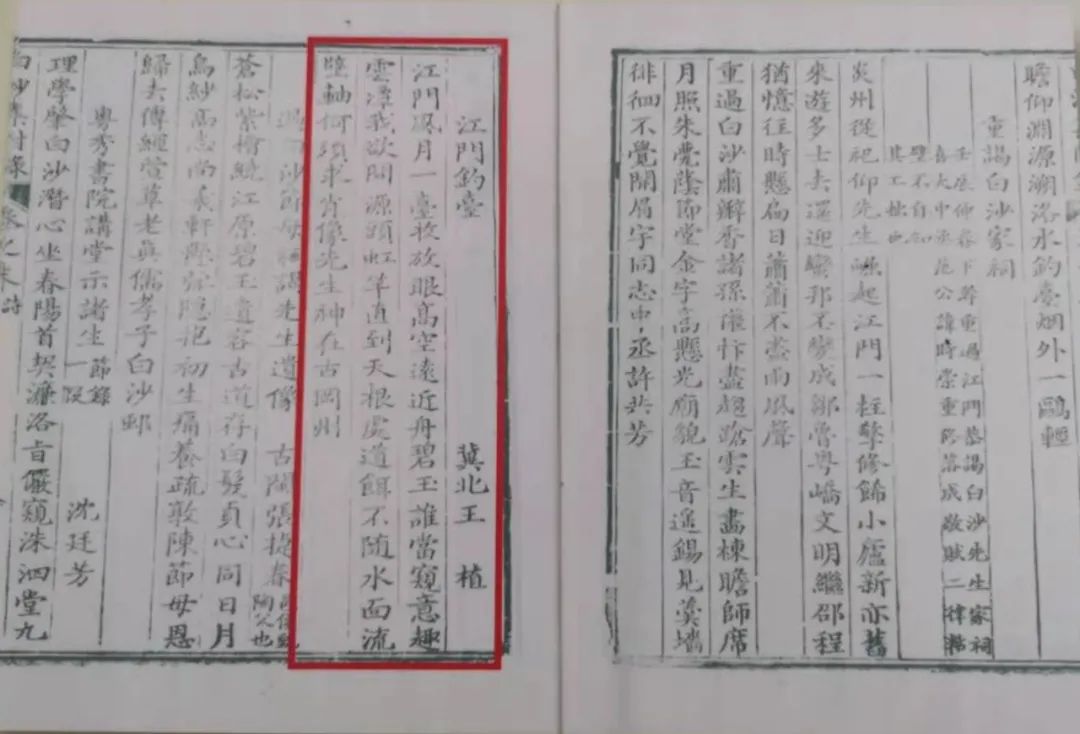 瞻仰淵源溯洛水鈞臺烟外一鷗輕
重謁白沙家祠
壬辰仲春下幹重過江門恭謁白沙先生家祠
喜大中丞范公諱時崇重脩落成敬賦二律
其工拙也
炎州從祀仰先生崛起江門一柱擎修餙小廬新亦舊
來遊多士去還迎蠻邦丕變成鄒魯粤嶠文明繼邵程
猶憶往時懸扁日蕭蕭不盡雨風聲
重過白沙肅瓣香諸孫傕忭盡趨蹌雲生畵棟瞻師席
月照朱甍蔭節堂金字高懸光廟貌玉音遥錫見羹墻
徘徊不覺關扃字同志中丞許共芳
江門釣臺 冀北王植
江門風月一臺收放眼高空遠近舟碧玉誰當窺意趣
雲潭我欲問源頭虹竿直到天根處道餌不隨水面流
壁軸何須求肖像先生神在古岡州
謁白沙節母祠謁先生遺像 古閩張捷春
蒼松紫檜繞江原碧玉遺容古道存白髮貞心同日月
烏紗高志尚羲軒懸弧隱抱初生痛養疏敢陳節母恩
歸去傳經萱草老真儒孝子白沙邨
粤秀書院講堂示諸生 節錄一段 沈廷芳
理學肇白沙潛心坐春陽首契濂洛旨儼窺洙泗堂九
白沙集附錄 卷之末 詩